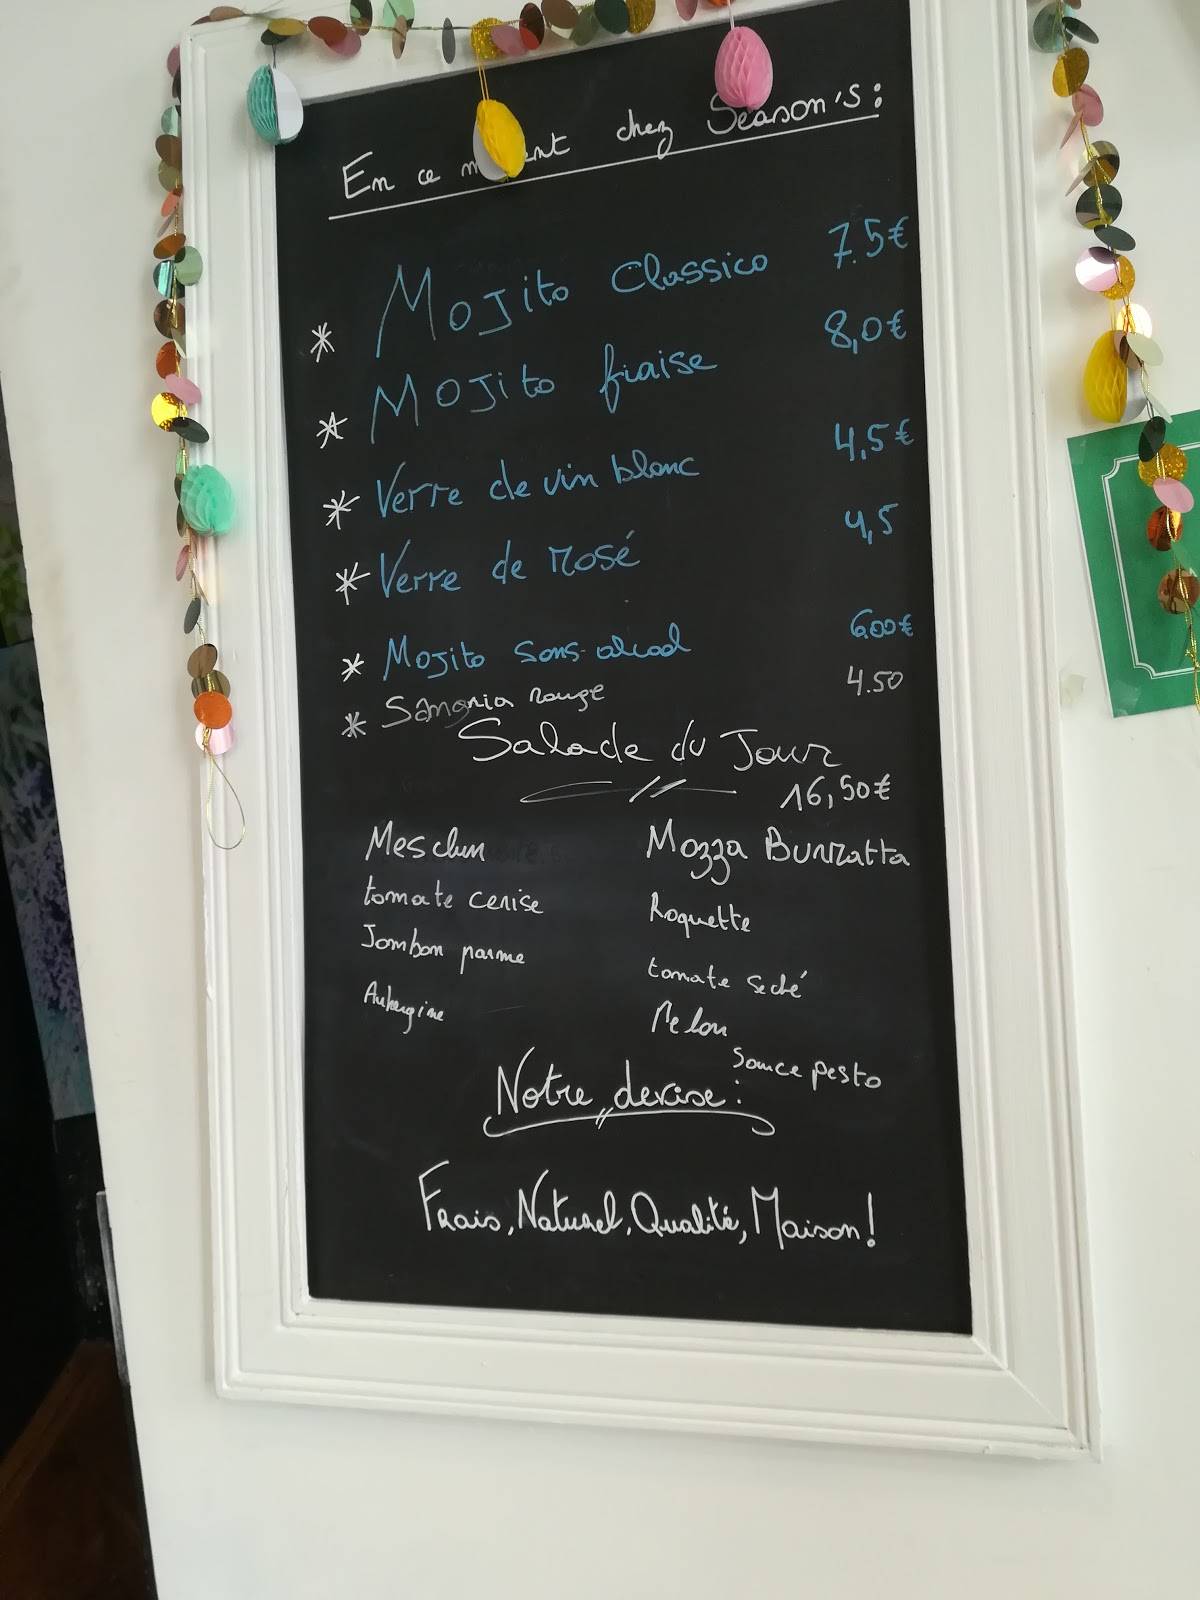 En ce moment chez Season's :
* Mojito Classico 7.5€
* Mojito fraise 8,0€
* Verre de vin blanc 4,5€
* Verre de rosé 4,5
* Mojito sans alcool 6.00€
* Sangria rouge 4.50
Salade du Jour
16,50€
Mesclun Mozza Burratta
tomate cerise Roquette
Jambon parme tomate seché
Aubergine Melon
Sauce pesto
Notre devise :
Frais, Naturel, Qualité, Maison !